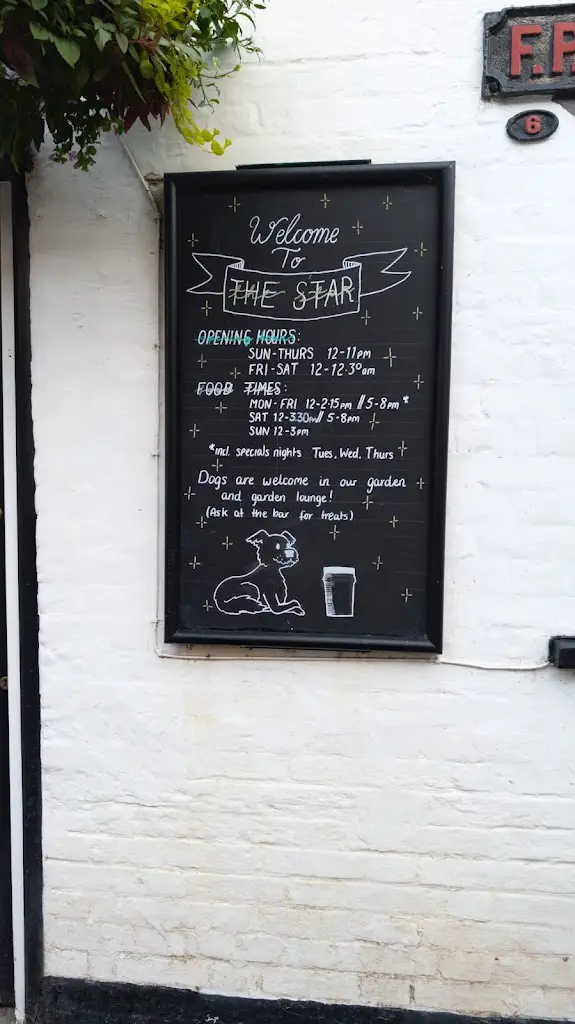 F.P
6
Welcome
To
THE STAR
OPENING HOURS:
SUN-THURS 12-11pm
FRI-SAT 12-12.30am
FOOD TIMES:
MON-FRI 12-2.15pm // 5-8pm*
SAT 12-3.30pm // 5-8pm
SUN 12-3pm
*incl. specials nights Tues, Wed, Thurs
Dogs are welcome in our garden
and garden lounge!
(Ask at the bar for treats)